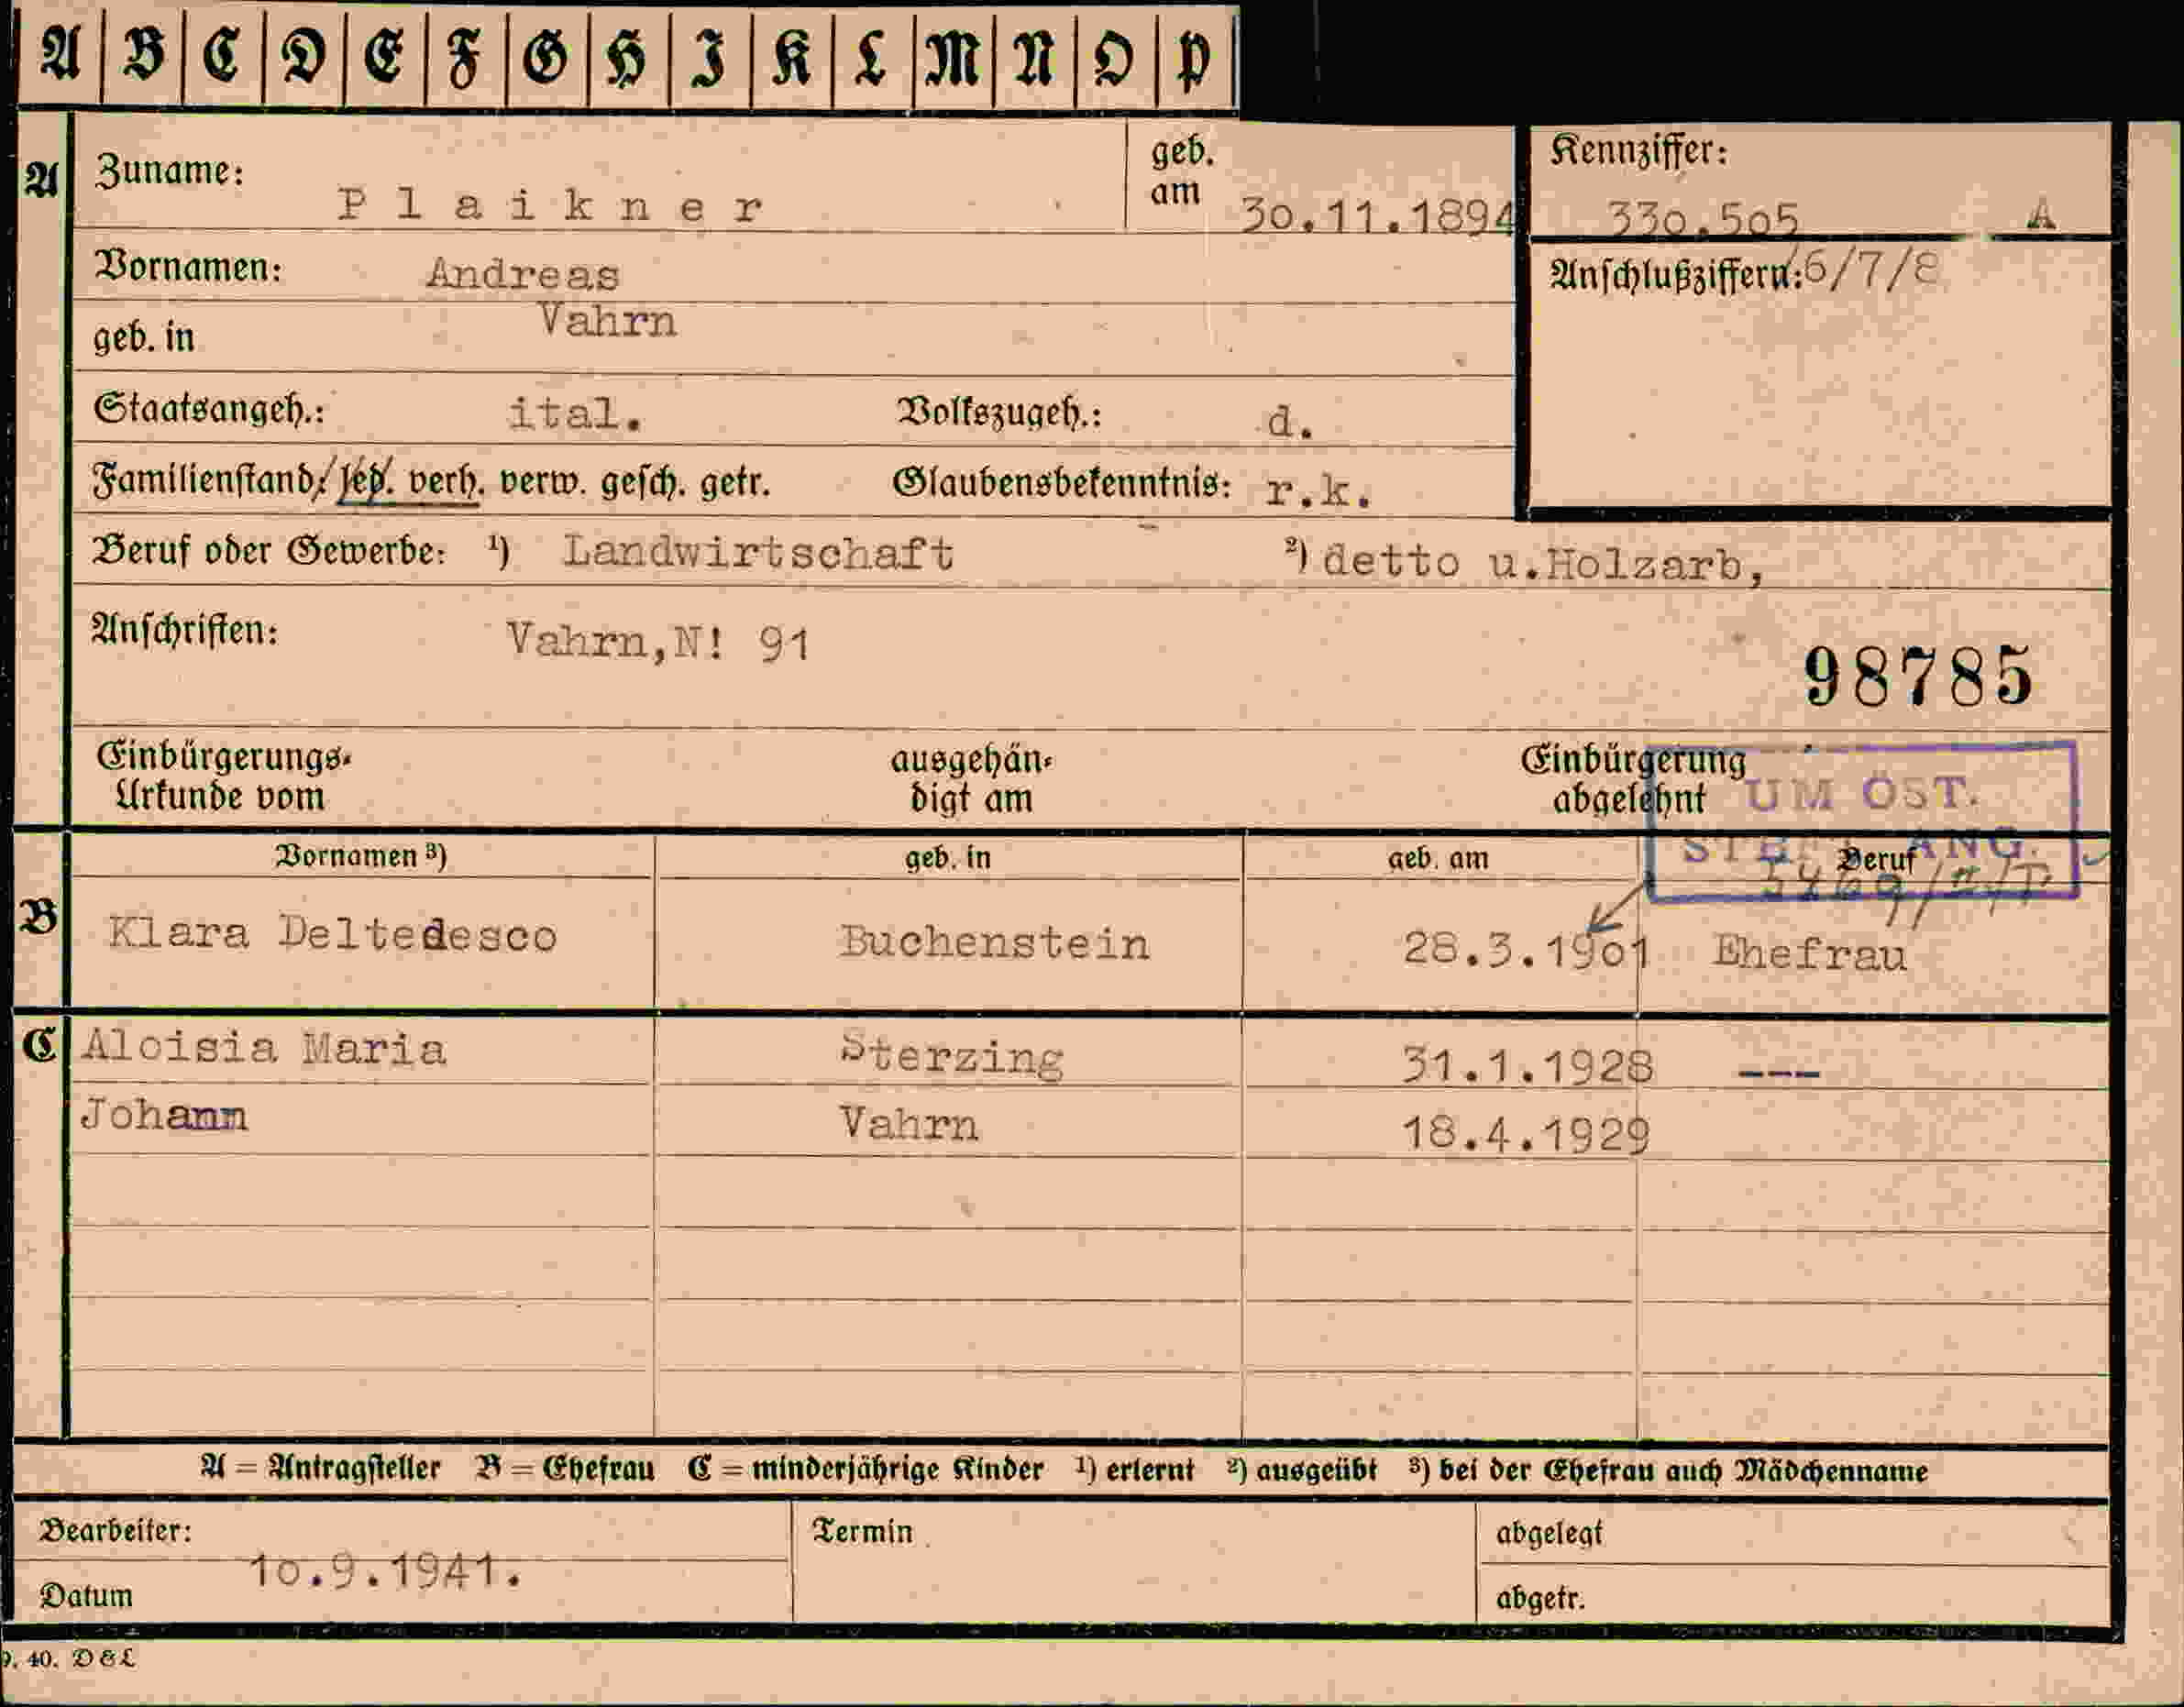 A B C D E F G H I K L M N O P
A Zuname: Plaikner geb. am 30.11.1894 Kennziffer: 330.505 A
Vornamen: Andreas Anschlußziffern: 6/7/8
geb. in Vahrn
Staatsangeh.: ital. Volkszugeh.: d.
Familienstand: led. verh. verw. gesch. getr. Glaubensbekenntnis: r.k.
Beruf oder Gewerbe: ¹) Landwirtschaft ²) detto u.Holzarb,
Anschriften: Vahrn,N! 91
98785
Einbürgerungs- ausgehän- Einbürgerung
Urkunde vom digt am abgelehnt
UM ÖST.
Vornamen ³) geb. in geb. am Beruf
B Klara Deltedesco Buchenstein 28.3.1901 Ehefrau
C Aloisia Maria Sterzing 31.1.1928 ---
Johann Vahrn 18.4.1929
A = Antragsteller B = Ehefrau C = minderjährige Kinder ¹) erlernt ²) ausgeübt ³) bei der Ehefrau auch Mädchenname
Bearbeiter: Termin abgelegt
10.9.1941.
Datum abgetr.
9. 40. D&L